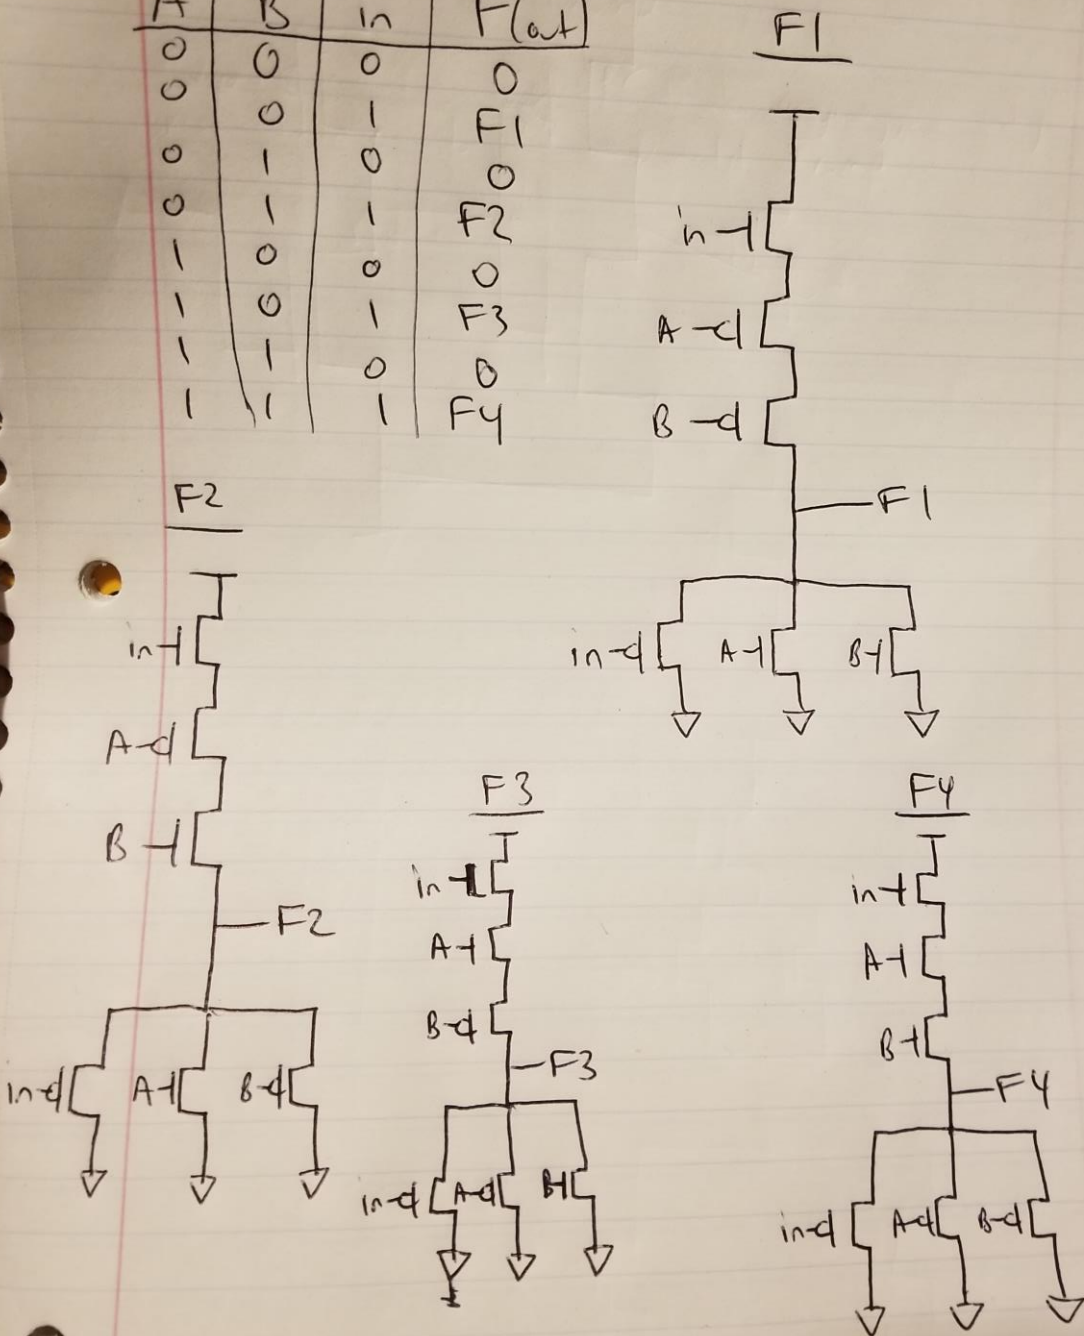 A B in F(out)
0 0 0 0
0 0 1 F1
0 1 0 0
0 1 1 F2
1 0 0 0
1 0 1 F3
1 1 0 0
1 1 1 F4
F1
in
A
B
F1
in A B
F2
in
A
B
F2
in A B
F3
in
A
B
F3
in A B
F4
in
A
B
F4
in A B